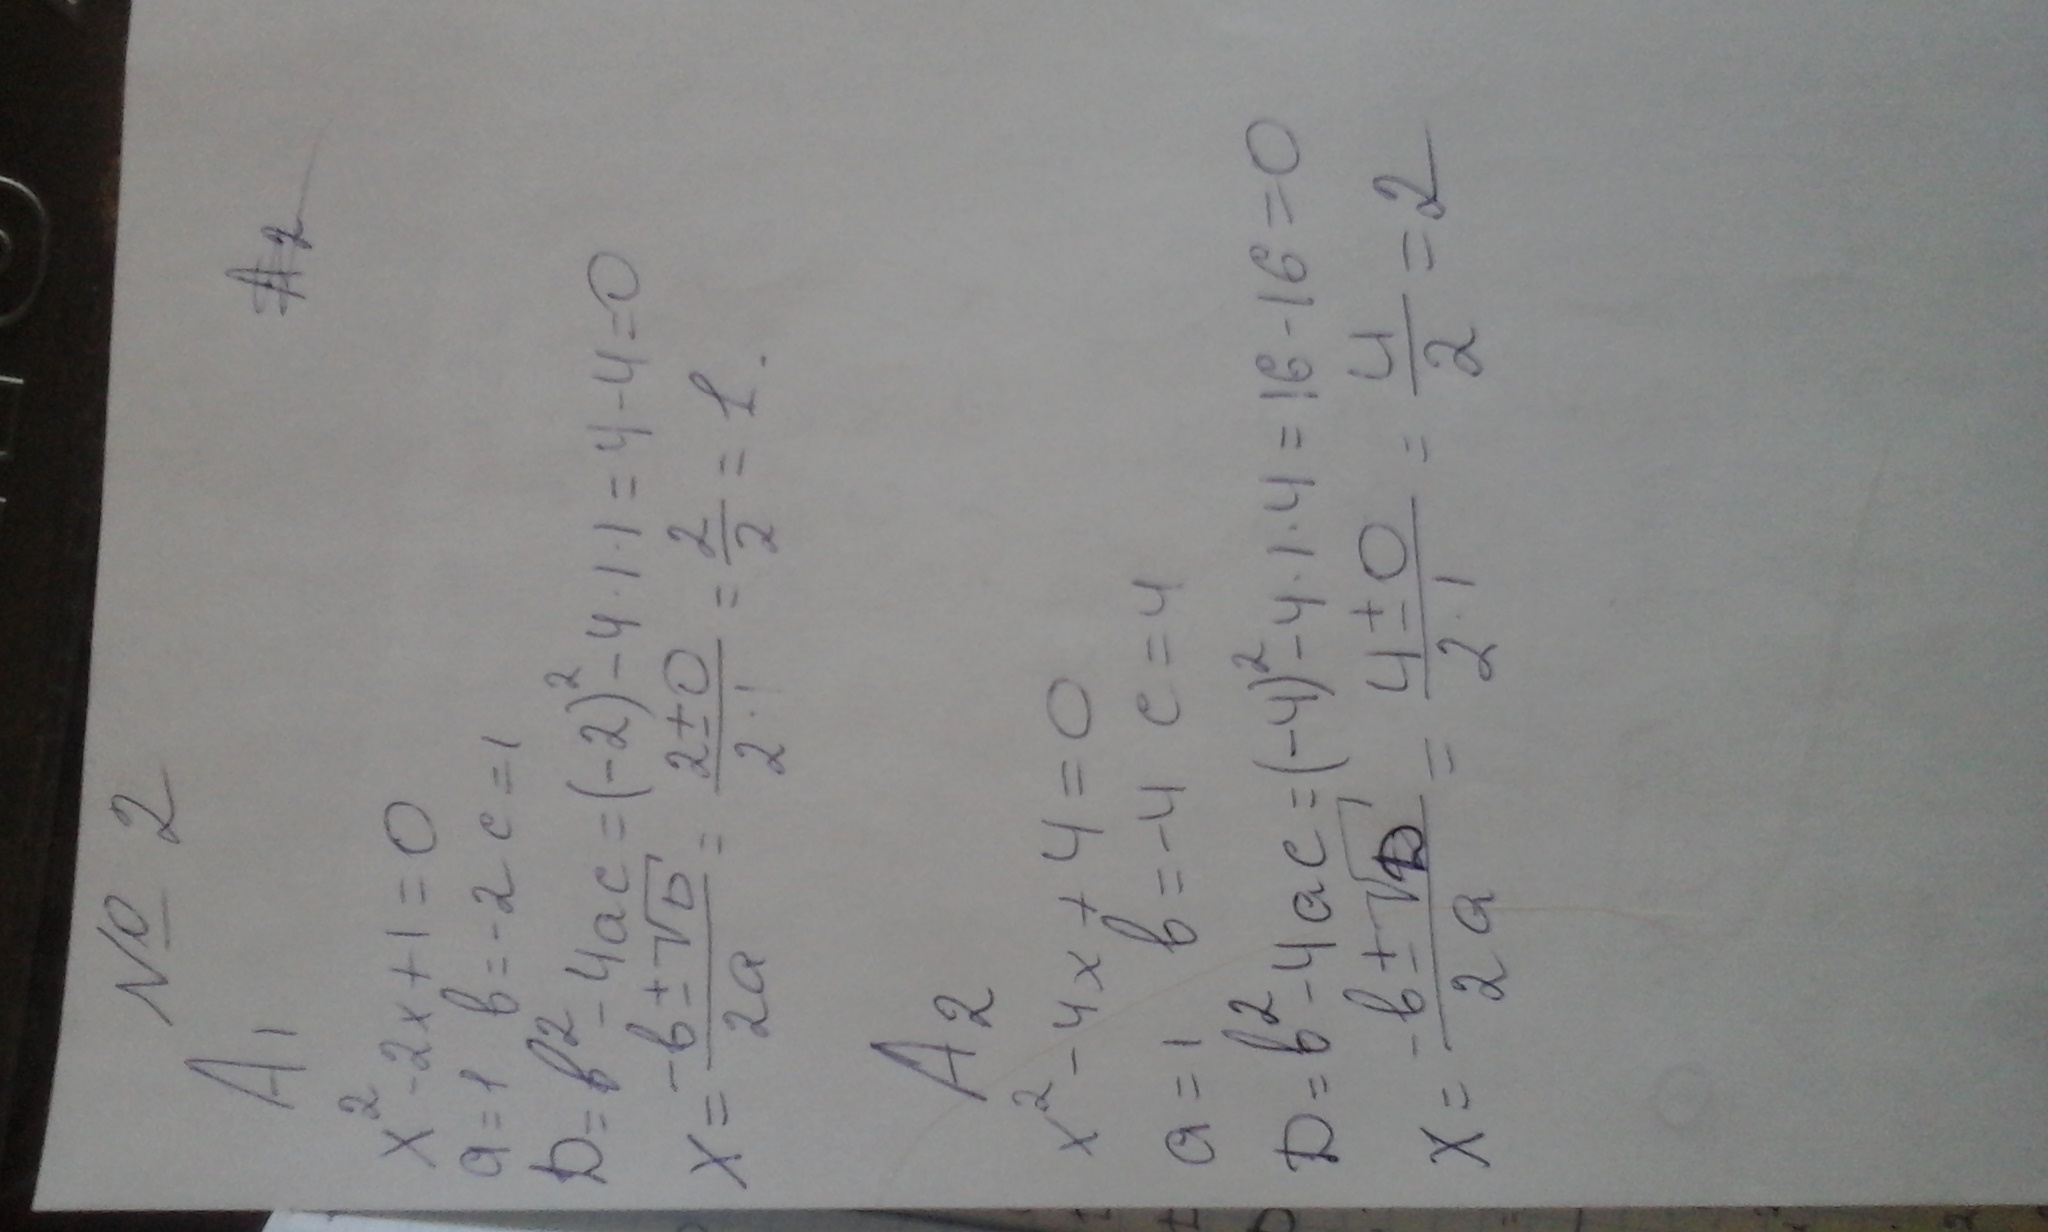 № 2
A1
x² - 2x + 1 = 0
a = 1 b = -2 c = 1
D = b² - 4ac = (-2)² - 4 · 1 · 1 = 4 - 4 = 0
x = (-b ± √D)/(2a) = (2 ± 0)/(2 · 1) = 2/2 = 1.
A2
x² - 4x + 4 = 0
a = 1 b = -4 c = 4
D = b² - 4ac = (-4)² - 4 · 1 · 4 = 16 - 16 = 0
x = (-b ± √D)/(2a) = (4 ± 0)/(2 · 1) = 4/2 = 2